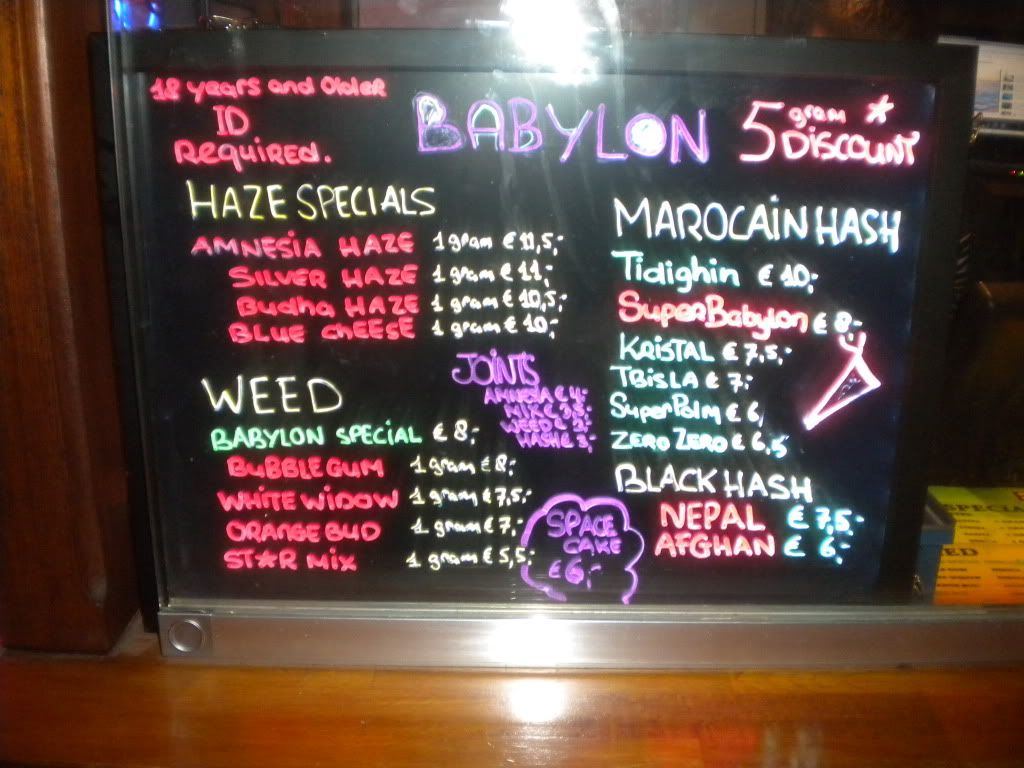 18 years and Older
ID
Required.
BABYLON
5 gram *
DISCOUNT
HAZE SPECIALS
AMNESIA HAZE 1 gram € 11,5,-
SILVER HAZE 1 gram € 11,-
Budha HAZE 1 gram € 10,5,-
BLUE CHEESE 1 gram € 10,-
WEED
BABYLON SPECIAL € 8,-
BUBBLEGUM 1 gram € 8,-
WHITE WIDOW 1 gram € 7,5,-
ORANGE BUD 1 gram € 7,-
ST★R MIX 1 gram € 5,5,-
JOINTS
AMNESIA € 4,-
MIX € 3,5,-
WEED € 3,-
HASH € 3,-
SPACE
CAKE
€ 6,-
MAROCAIN HASH
Tidighin € 10,-
SuperBabylon € 8,-
KRISTAL € 7,5,-
TBISLA € 7,-
SuperPolm € 6,
ZERO ZERO € 6,5
BLACK HASH
NEPAL € 7,5,-
AFGHAN € 6,-
SPECIAL